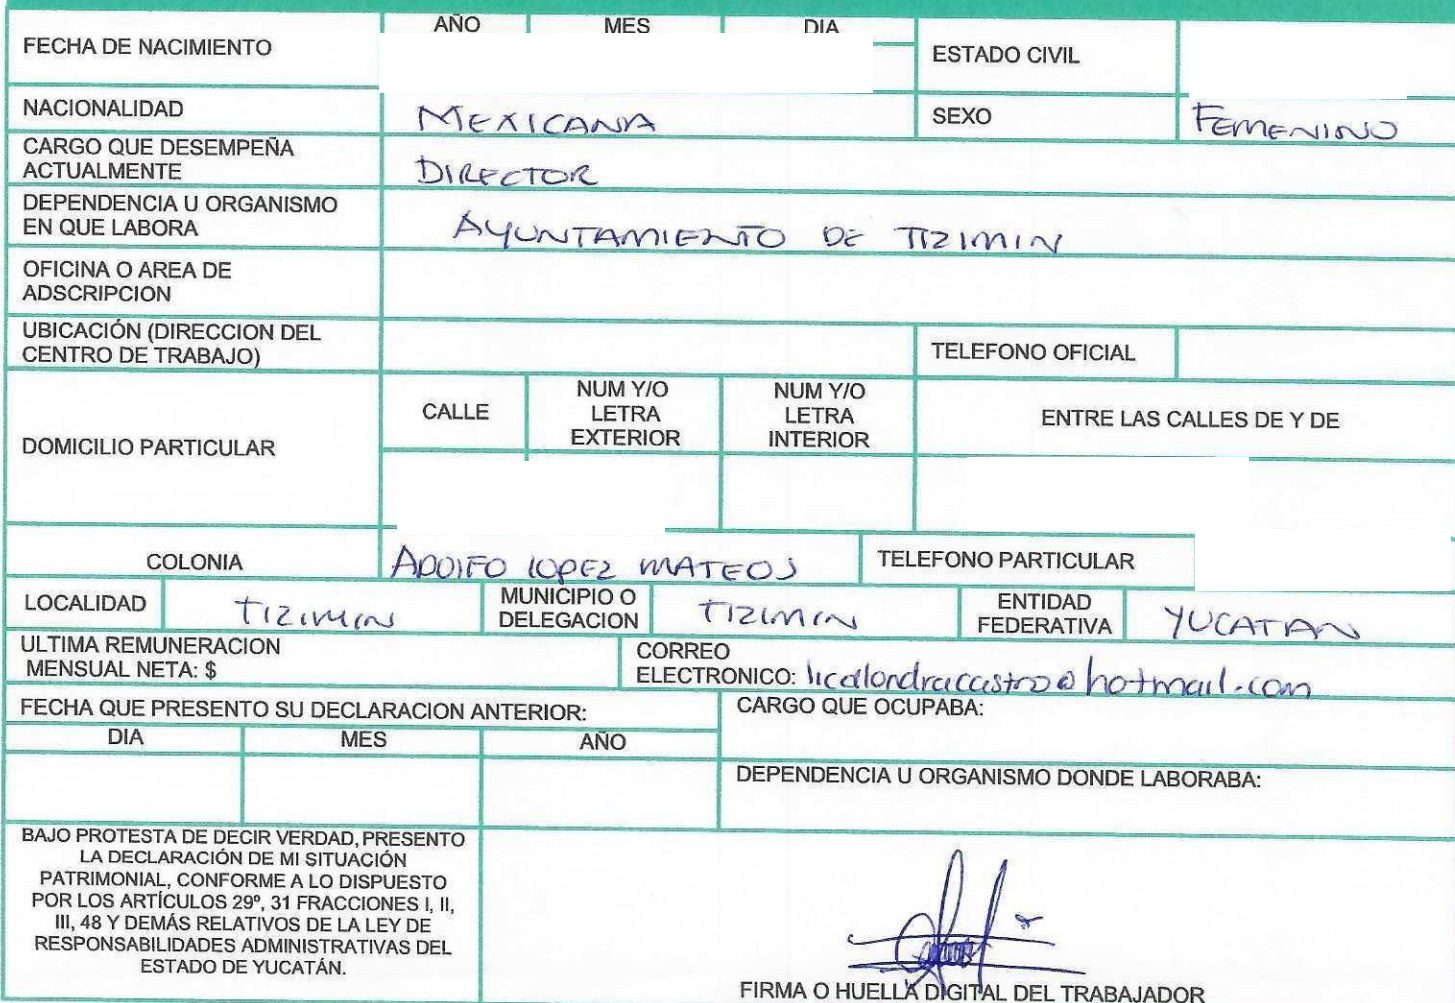 AÑO MES DIA
FECHA DE NACIMIENTO
ESTADO CIVIL
NACIONALIDAD MEXICANA SEXO FEMENINO
CARGO QUE DESEMPEÑA
ACTUALMENTE
DIRECTOR
DEPENDENCIA U ORGANISMO
EN QUE LABORA
AYUNTAMIENTO DE TIZIMIN
OFICINA O AREA DE
ADSCRIPCION
UBICACIÓN (DIRECCION DEL
CENTRO DE TRABAJO)
TELEFONO OFICIAL
DOMICILIO PARTICULAR
CALLE
NUM Y/O
LETRA
EXTERIOR
NUM Y/O
LETRA
INTERIOR
ENTRE LAS CALLES DE Y DE
COLONIA ADOLFO LOPEZ MATEOS TELEFONO PARTICULAR
LOCALIDAD TIZIMIN
MUNICIPIO O
DELEGACION
TIZIMIN
ENTIDAD
FEDERATIVA
YUCATAN
ULTIMA REMUNERACION
MENSUAL NETA: $
CORREO
ELECTRONICO: licalondracastro@hotmail.com
FECHA QUE PRESENTO SU DECLARACION ANTERIOR:
DIA MES AÑO
CARGO QUE OCUPABA:
DEPENDENCIA U ORGANISMO DONDE LABORABA:
BAJO PROTESTA DE DECIR VERDAD, PRESENTO
LA DECLARACIÓN DE MI SITUACIÓN
PATRIMONIAL, CONFORME A LO DISPUESTO
POR LOS ARTÍCULOS 29º, 31 FRACCIONES I, II,
III, 48 Y DEMÁS RELATIVOS DE LA LEY DE
RESPONSABILIDADES ADMINISTRATIVAS DEL
ESTADO DE YUCATÁN.
FIRMA O HUELLA DIGITAL DEL TRABAJADOR